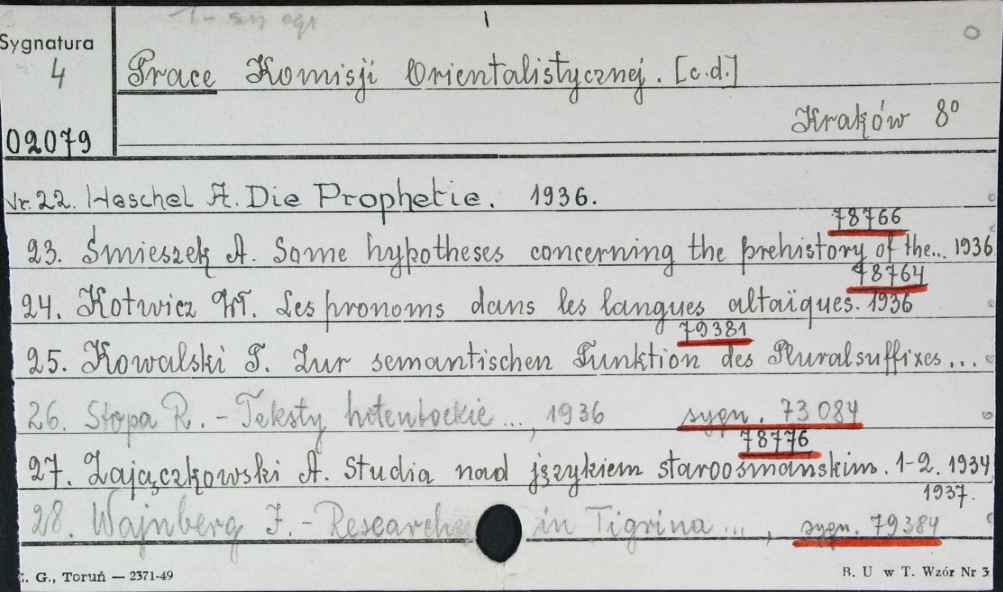 Sygnatura
4
02079
Prace Komisji Orientalistycznej. [c.d.]
Kraków 8°
Nr. 22. Heschel A. Die Prophetie. 1936.
78766
23. Śmieszek A. Some hypotheses concerning the prehistory of the... 1936
78764
24. Kotwicz Wł. Les pronoms dans les langues altaïques. 1936
79381
25. Kowalski T. Zur semantischen Funktion des Pluralsuffixes...
26. Stopa R. - Teksty hotentockie ..., 1936 sygn. 73084
78776
27. Zajączkowski A. Studia nad językiem staroosmańskim. 1-2. 1934
1937.
28. Wajnberg I. - Researches in Tigrina ..., sygn. 79384
C. G., Toruń — 2371-49
B. U w T. Wzór Nr 3